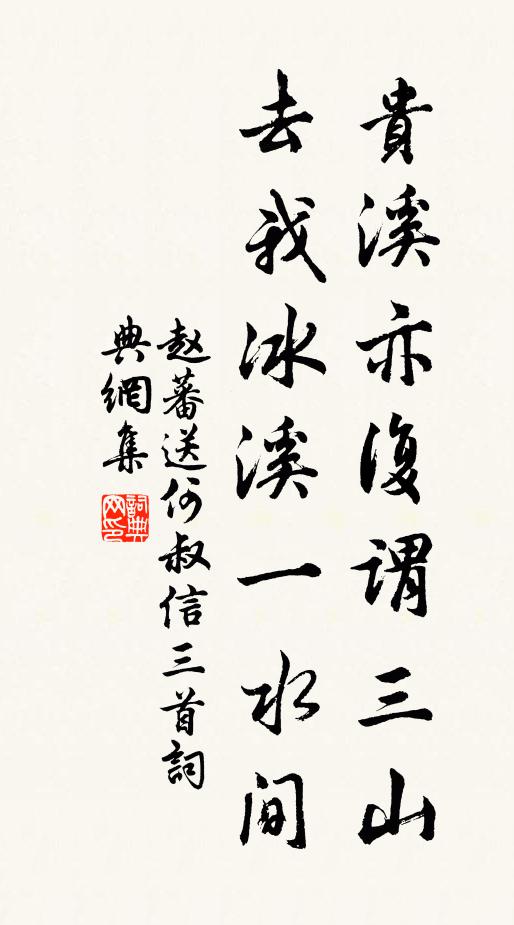 貴溪亦復謂三山
去我冰溪一水间
赵蕃送何叔信三首詞
典網集
詞典网印